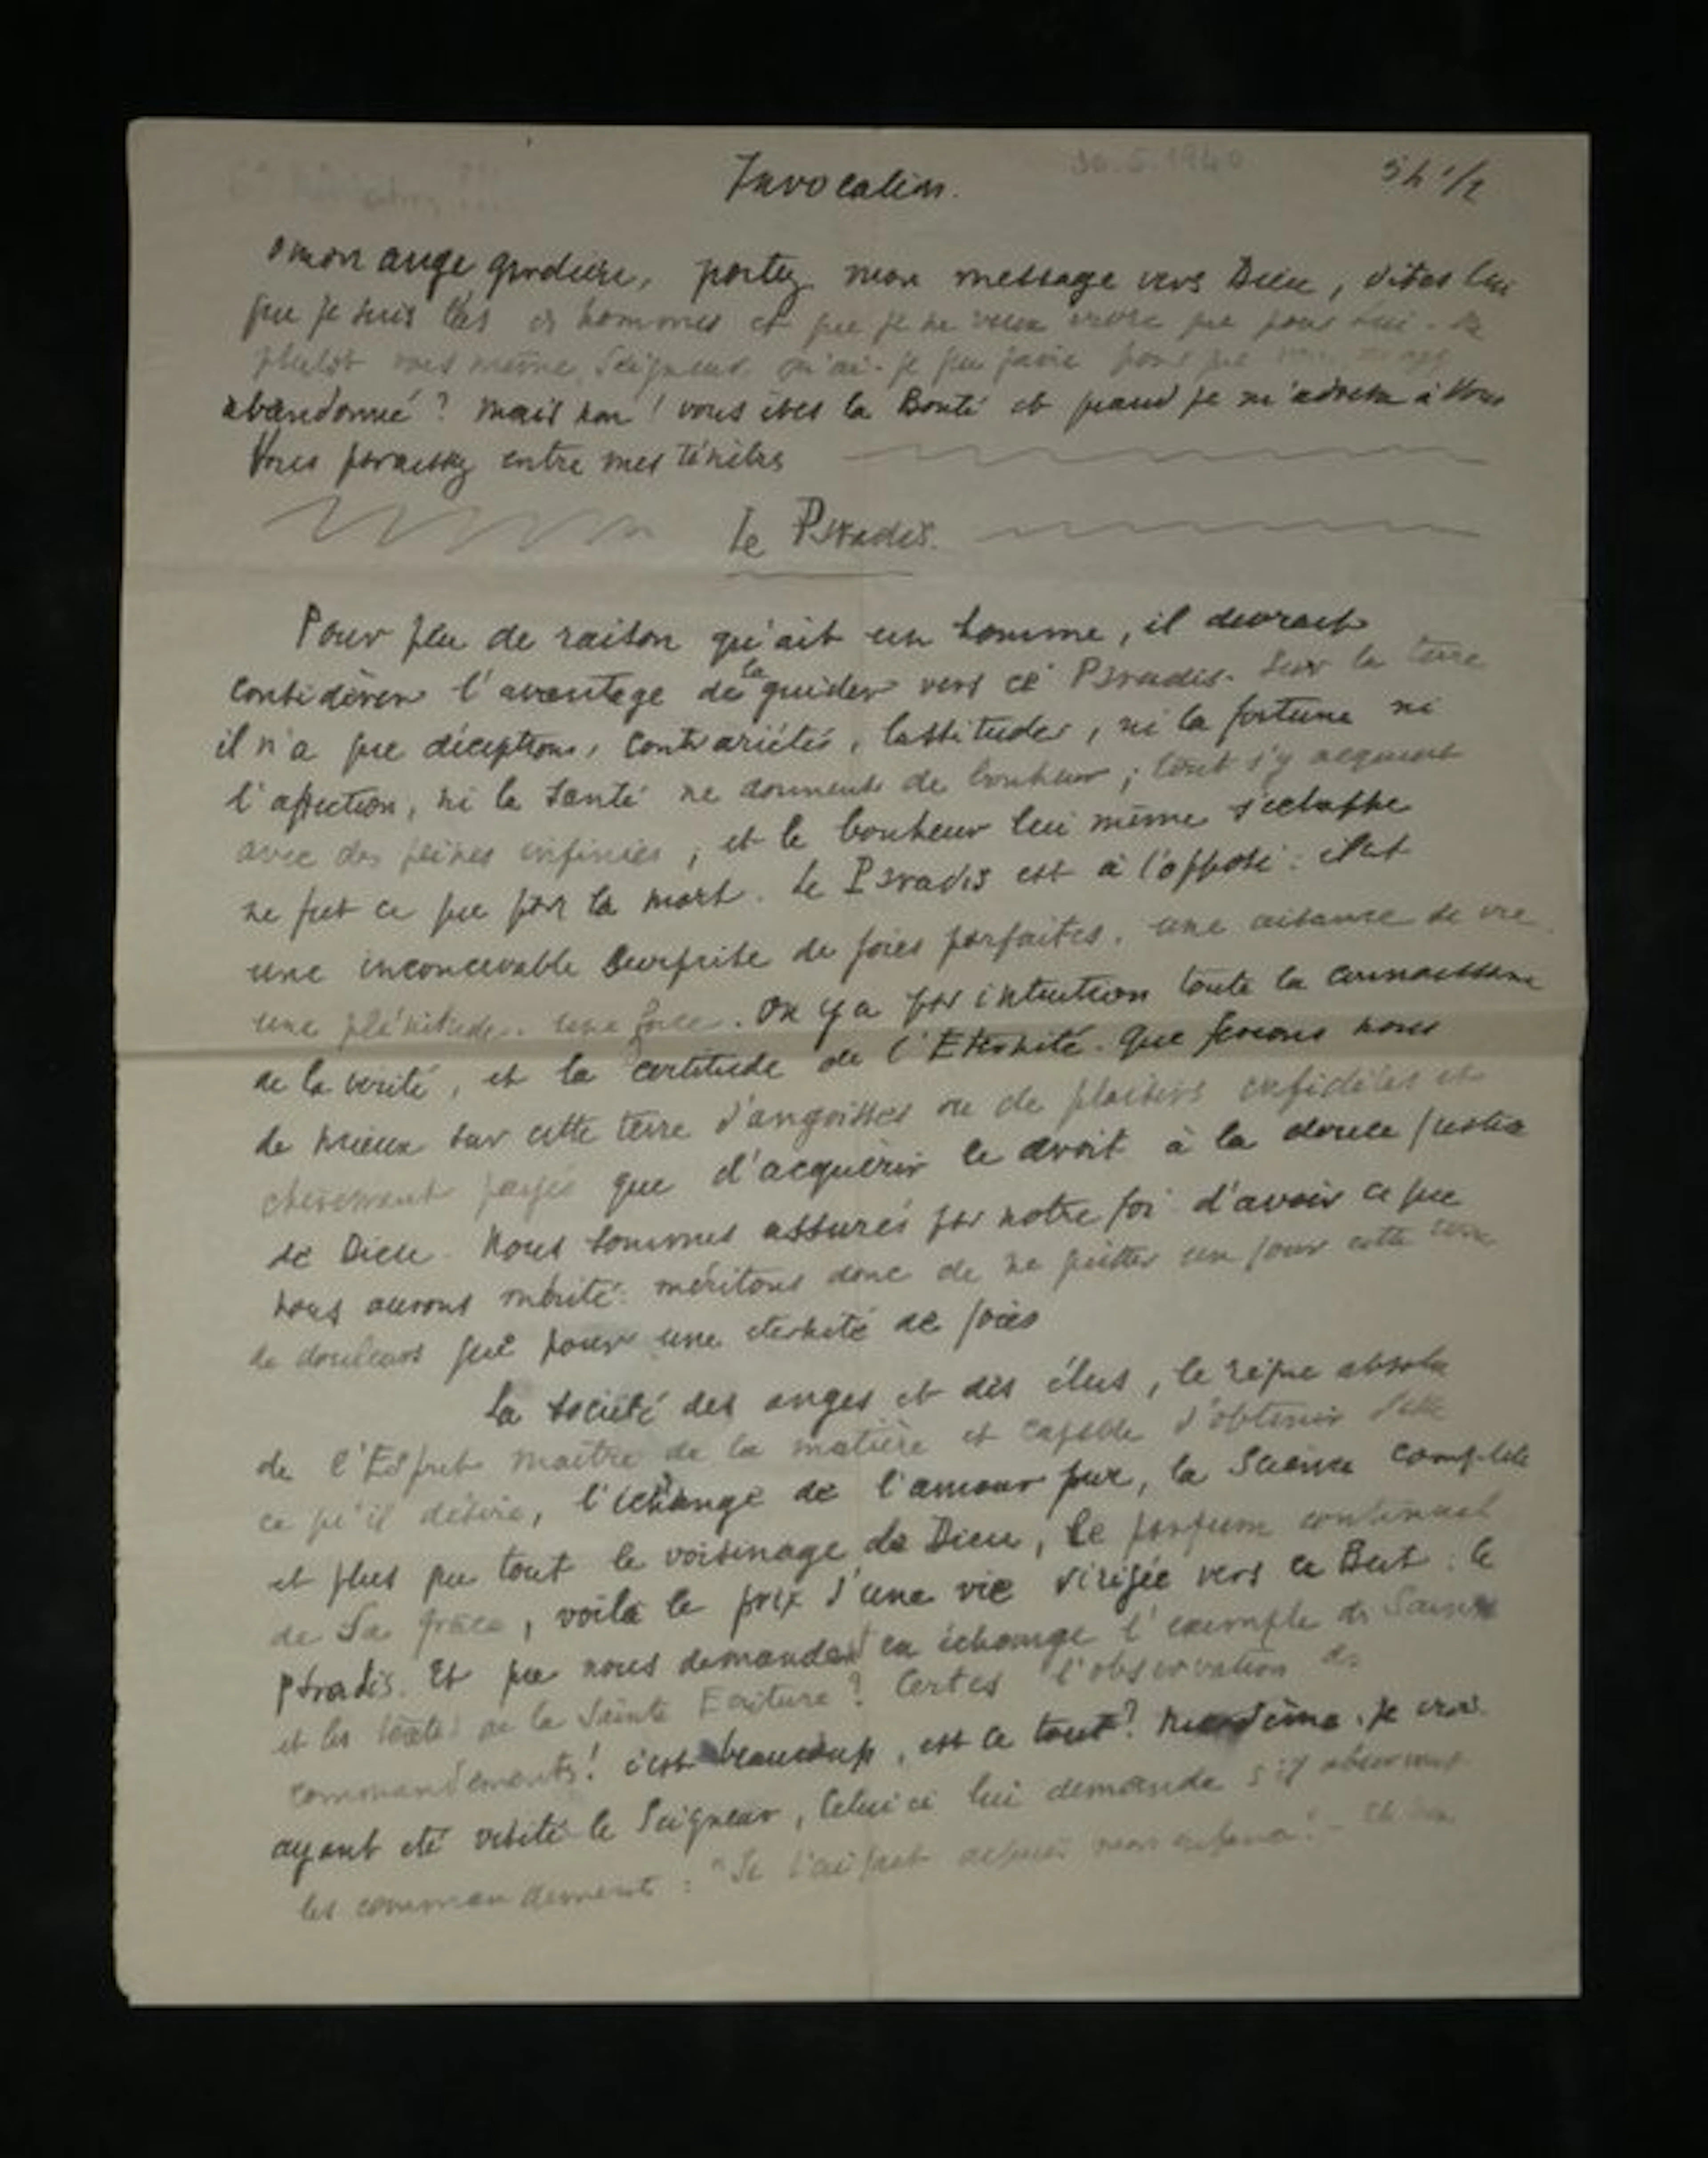 Invocation. 30.5.1940 5h 1/2
O mon ange gardien, portez mon message vers Dieu, dites lui
que je suis las des hommes et que je ne veux vivre que pour Lui.
plutôt vous même, Seigneur, qu'ai-je pu faire pour que
abandonné ? Mais non ! vous êtes la Bonté et quand je m'adresse à Vous
Vous paraissez entre mes ténèbres
Le Paradis.
Pour peu de raison qu'ait un homme, il devrait
considérer l'avantage de la guider vers ce Paradis. Sur la terre
il n'a que déceptions, contrariétés, lassitudes, ni la fortune ni
l'affection, ni la santé ne donnent de bonheur ; tout s'y acquiert
avec des peines infinies ; et le bonheur lui même s'échappe
ne fut ce que par la mort. Le Paradis est à l'opposé : c'est
une inconcevable surprise de joies parfaites, une aisance de vie
une plénitude.. une force. On y a par intuition toute la connaissance
de la vérité, et la certitude de l'Eternité. Que ferions nous
de mieux sur cette terre d'angoisses ou de plaisirs infidèles et
chèrement payés que d'acquérir le droit à la douce justice
de Dieu. Nous sommes assurés par notre foi d'avoir ce que
nous aurons mérité : méritons donc de ne quitter un jour cette terre
de douleurs que pour une éternité de joies
La société des anges et des élus, le règne absolu
de l'Esprit maître de la matière et capable d'obtenir d'elle
ce qu'il désire, l'échange de l'amour pur, la Science complète
et plus que tout le voisinage de Dieu, le parfum continuel
de Sa grâce, voilà le prix d'une vie dirigée vers ce But : le
Paradis. Et que nous demandent en échange l'exemple des Saints
et les textes de la Sainte Ecriture ? Certes l'observation des
commandements ! c'est beaucoup, est ce tout ? je crois
ayant été visité le Seigneur, Celui ci lui demande s'il observait
les commandements : "Je l'ai fait depuis mon enfance" -